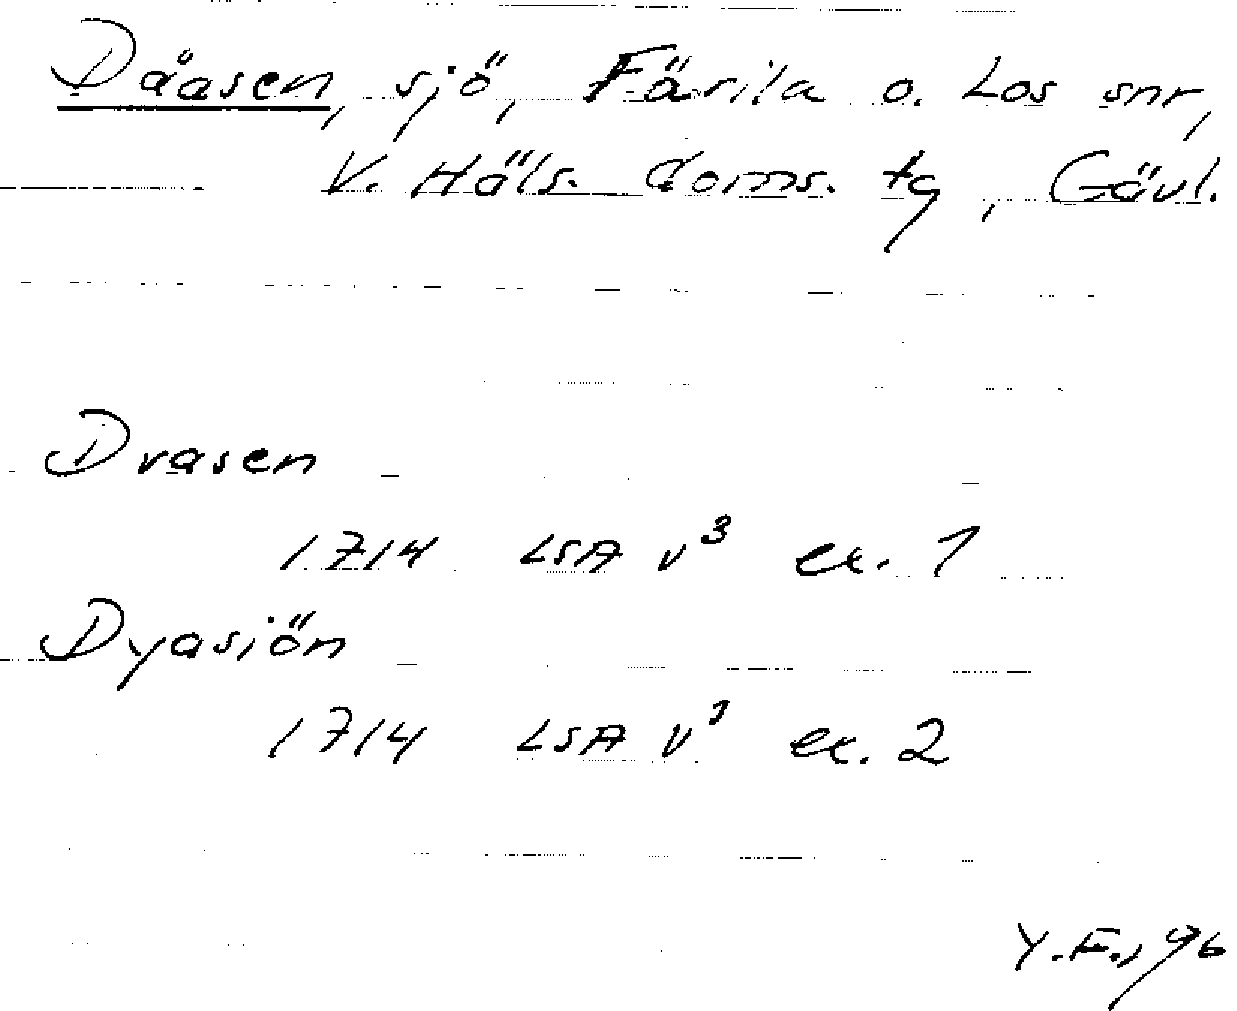 Dåasen, sjö, Färila o. Los snr,
V. Häls. doms. tg, Gävl.
Drasen
1714 LSA v³ ex. 1
Dyasiön
1714 LSA v³ ex. 2
Y.F., 96